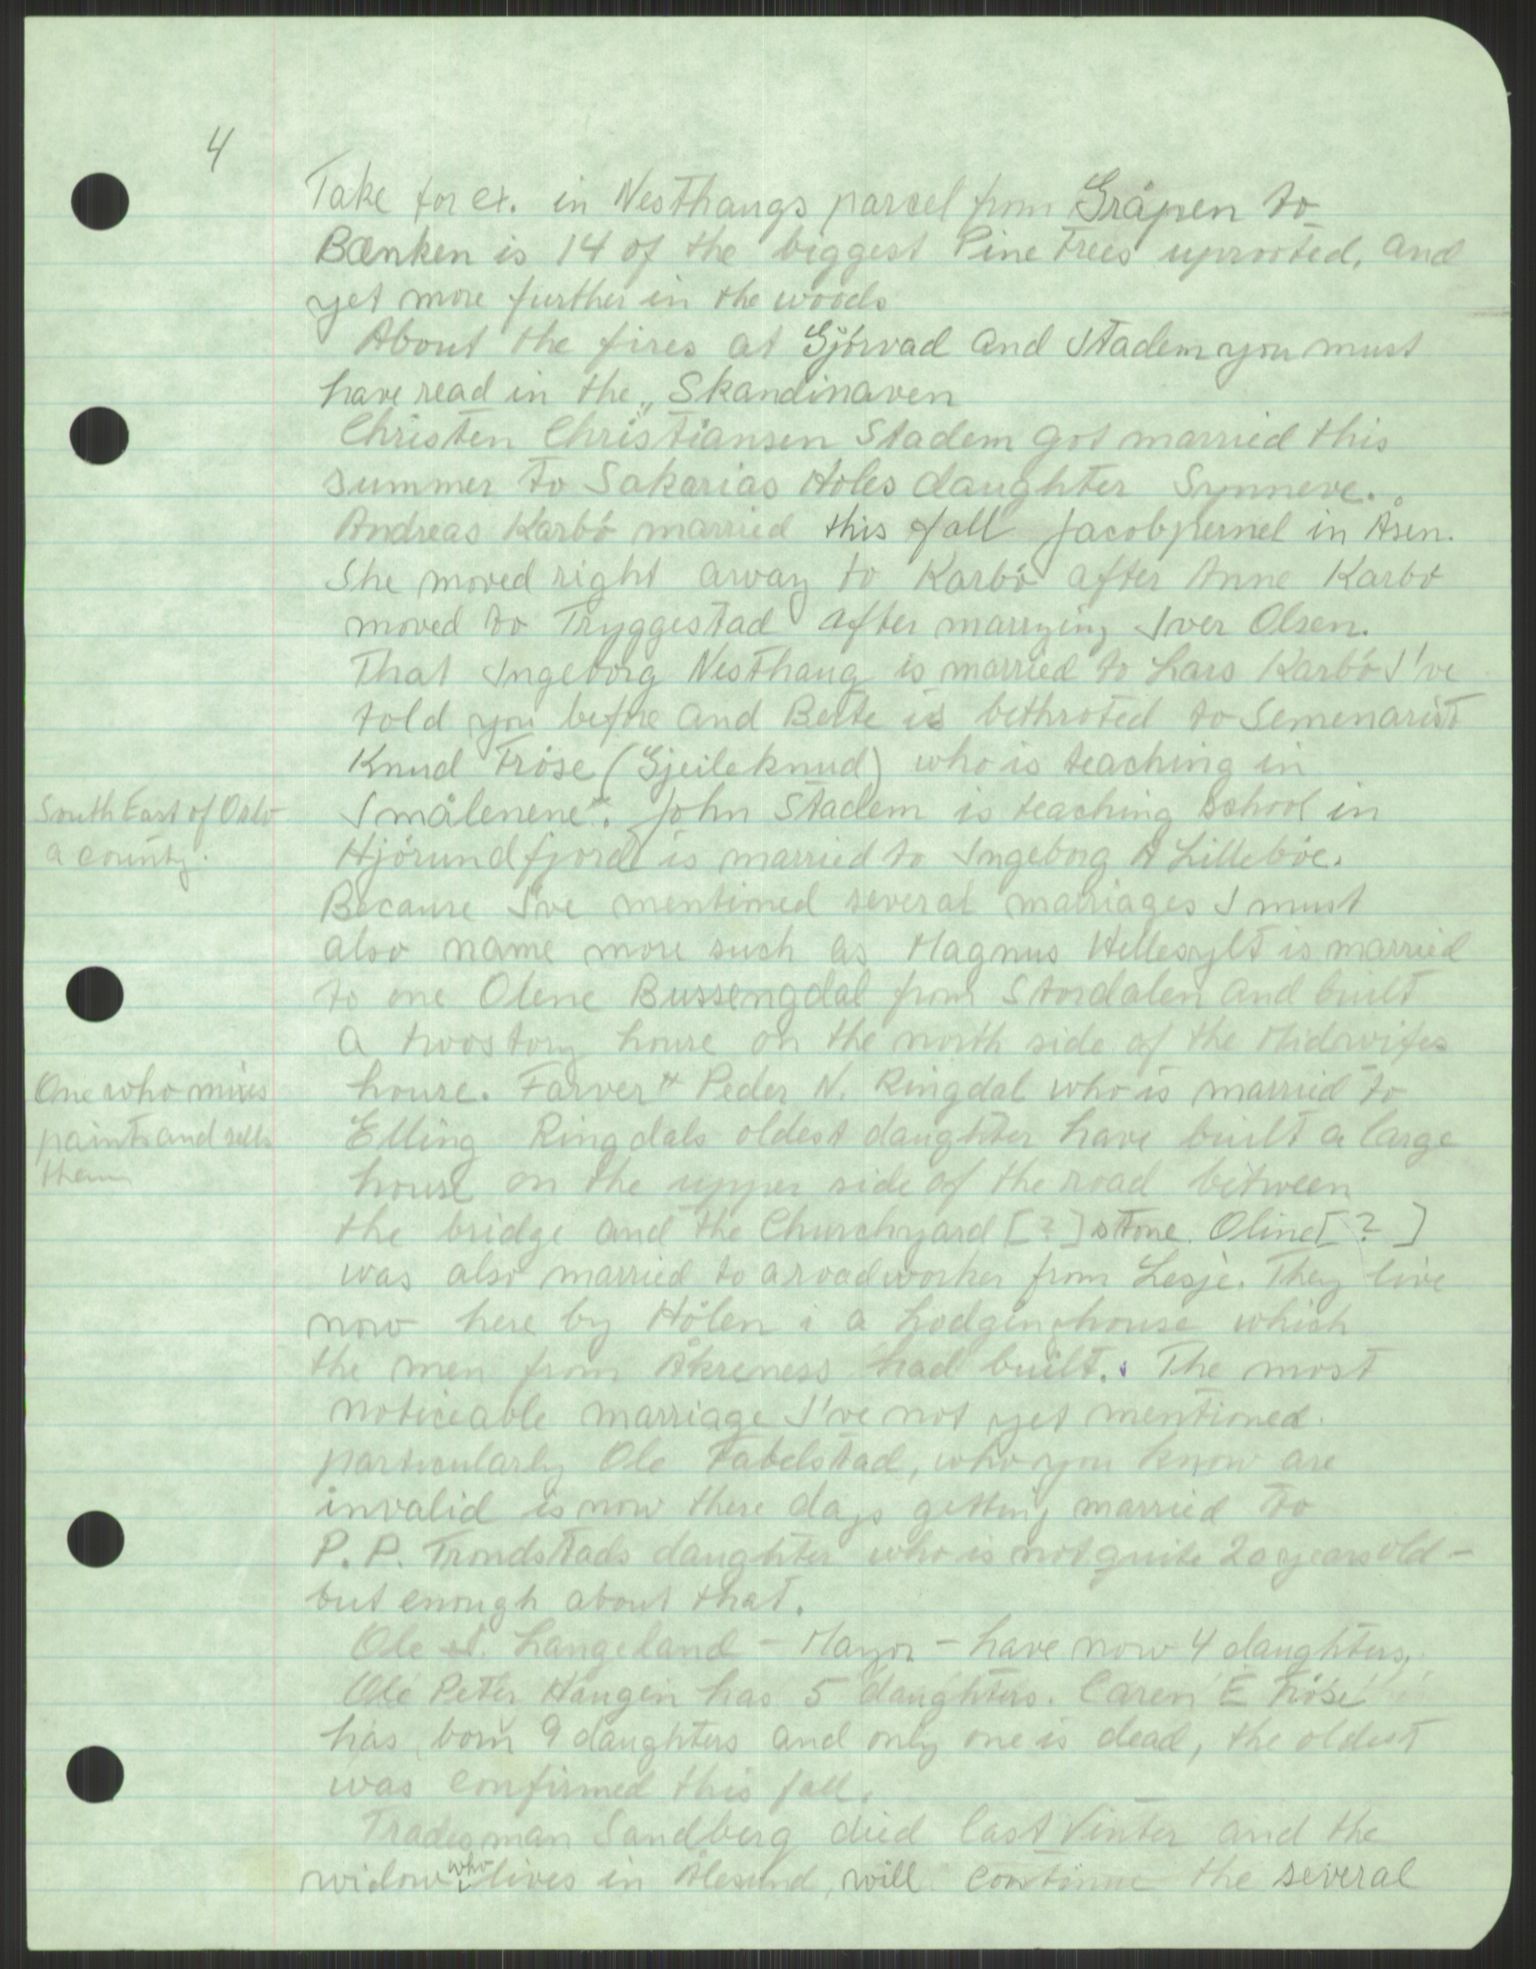 4
Take for ex. in Nesthaugs parcel from Gråpen to
Bænken is 14 of the biggest Pine trees uprooted, and
yet more further in the woods
About the fires at Gjörvad and Stadem you must
have read in the „Skandinaven
Christen Christiansen Stadem got married this
summer to Sakarias Holes daughter Synneve.
Andreas Karbö married this fall Jacobpernel in Åsen.
She moved right away to Karbö after Anne Karbö
moved to Tryggestad after marrying Iver Olsen.
That Ingeborg Nesthaug is married to Lars Karbö I've
told you before and Berte is bethroted to Semenarist
Knud Fröse (Gjeileknud) who is teaching in
South East of Oslo
a county.
Smålenene*. John Stadem is teaching school in
Hjörundfjord is married to Ingeborg A Lilleböe.
Because I've mentioned several marriages I must
also name more such as Magnus Hellesylt is married
to one Olene Bussengdal from Stordalen and built
a twostory house on the north side of the Midwifes
One who mixes
paints and sells
them
house. Farver* Peder N. Ringdal who is married to
Elling Ringdals oldest daughter have built a large
house on the upper side of the road between
the bridge and the Churchyard [?] stone. Oline [? ]
was also married to a roadworker from Lesje. They live
now here by Hölen i a Lodginghouse which
the men from Åkreness had built. The most
noticeable marriage I've not yet mentioned.
particularly Ole Tabelstad, who you know are
invalid is now these days getting married to
P.P. Trondstads daughter who is not quite 20 years old -
but enough about that.
Ole Langeland - Mayor - have now 4 daughters,
Ole Peter Haugen has 5 daughters. Caren E Fröse
has born 9 daughters and only one is dead, the oldest
was confirmed this fall.
Tradesman Sandberg died last Vinter and the
widow who lives in Ålesund, will continue the several